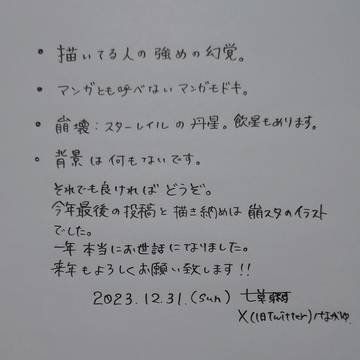 • 描いてる人の強めの幻覚。
• マンガとも呼べないマンガモドキ。
• 崩壊:スターレイルの丹星。飲星もあります。
• 背景は何もないです。
それでも良ければどうぞ。
今年最後の投稿と描き納めは崩スタのイラスト
でした。
一年本当にお世話になりました。
来年もよろしくお願い致します!!
2023.12.31.(sun)
X(旧twitter)/